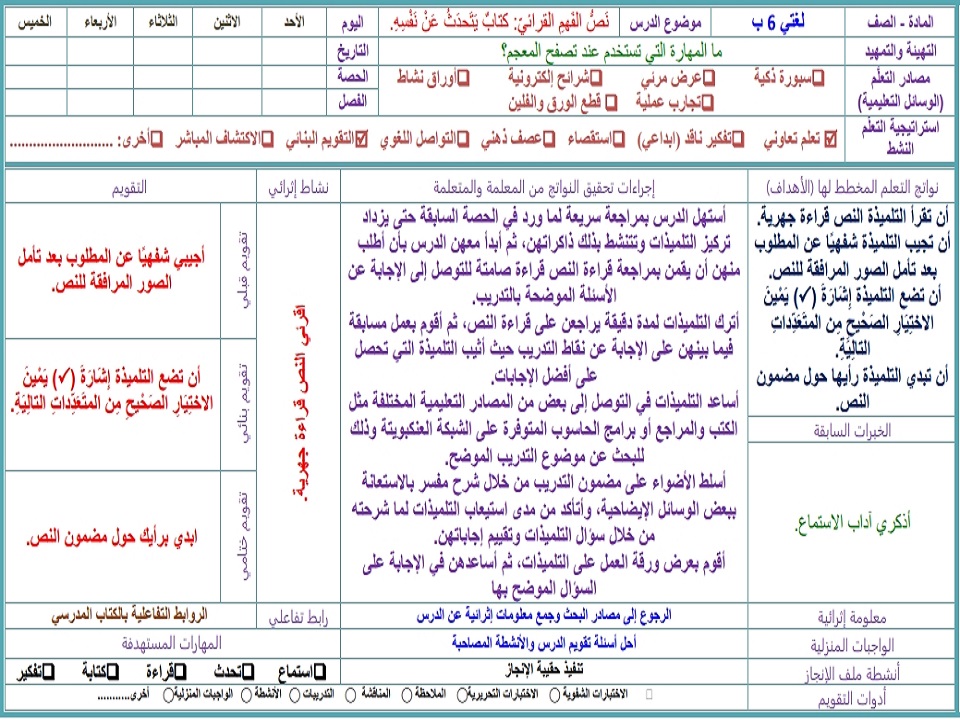 المادة - الصف لغتي 6 ب موضوع الدرس نَصُّ الفَهمِ القرائيّ: كتابٌ يَتَحدَثُ عَنْ نَفْسِهِ. اليوم الأحد الاثنين الثلاثاء الأربعاء الخميس
التهيئة والتمهيد ما المهارة التي تستخدم عند تصفح المعجم؟ التاريخ
مصادر التعلّم ❑سبورة ذكية ❑عرض مرئي ❑شرائح إلكترونية ❑أوراق نشاط الحصة
(الوسائل التعليمية) ❑تجارب عملية ❑ قطع الورق والفلين الفصل
استراتيجية التعلّم ☑ تعلم تعاوني ❑تفكير ناقد (ابداعي) ❑استقصاء ❑عصف ذهني ❑التواصل اللغوي ☑التقويم البنائي ❑الاكتشاف المباشر ❑أخرى: ...........................
النشط
نواتج التعلم المخطط لها (الأهداف) إجراءات تحقيق النواتج من المعلمة والمتعلمة نشاط إثرائي التقويم
أن تقرأ التلميذة النص قراءة جهرية.
أن تجيب التلميذة شفهيًا عن المطلوب
بعد تأمل الصور المرافقة للنص.
أن تضع التلميذة إشَارَةَ (✓) يَمْينَ
الاختِيَارِ الصَحْيحِ مِن المتَعَدِّدَاتِ
التاليَةِ.
أن تبدي التلميذة رأيها حول مضمون
النص.
الخبرات السابقة
أذكري آداب الاستماع.
أستهل الدرس بمراجعة سريعة لما ورد في الحصة السابقة حتى يزداد
تركيز التلميذات وتتنشط بذلك ذاكراتهن، ثم أبدأ معهن الدرس بأن أطلب
منهن أن يقمن بمراجعة قراءة النص قراءة صامتة للتوصل إلى الإجابة عن
الأسئلة الموضحة بالتدريب.
أترك التلميذات لمدة دقيقة يراجعن على قراءة النص، ثم أقوم بعمل مسابقة
فيما بينهن على الإجابة عن نقاط التدريب حيث أثيب التلميذة التي تحصل
على أفضل الإجابات.
أساعد التلميذات في التوصل إلى بعض من المصادر التعليمية المختلفة مثل
الكتب والمراجع أو برامج الحاسوب المتوفرة على الشبكة العنكبوتية وذلك
للبحث عن موضوع التدريب الموضح.
أسلط الأضواء على مضمون التدريب من خلال شرح مفسر بالاستعانة
ببعض الوسائل الإيضاحية، وأتأكد من مدى استيعاب التلميذات لما شرحته
من خلال سؤال التلميذات وتقييم إجاباتهن.
أقوم بعرض ورقة العمل على التلميذات، ثم أساعدهن في الإجابة على
السؤال الموضح بها
اقرئي النص قراءة جهرية.
تقويم قبلي
أجيبي شفهيًا عن المطلوب بعد تأمل
الصور المرافقة للنص.
تقويم بنائي
أن تضع التلميذة إشَارَةَ (✓) يَمْينَ
الاختِيَارِ الصَحْيحِ مِن المتَعَدِّدات التاليَةِ.
تقويم ختامي
ابدي برأيك حول مضمون النص.
معلومة إثرائية الرجوع إلى مصادر البحث وجمع معلومات إثرائية عن الدرس رابط تفاعلي الروابط التفاعلية بالكتاب المدرسي
الواجبات المنزلية أحل أسئلة تقويم الدرس والأنشطة المصاحبة المهارات المستهدفة
أنشطة ملف الإنجاز تنفيذ حقيبة الإنجاز ❑استماع ❑تحدث ❑قراءة ❑كتابة ❑تفكير
أدوات التقويم الاختبارات الشفوية ○ الاختبارات التحريرية○ الملاحظة ○ المناقشة ○ التدريبات ○ الأنشطة ○ الواجبات المنزلية○ أخرى...........